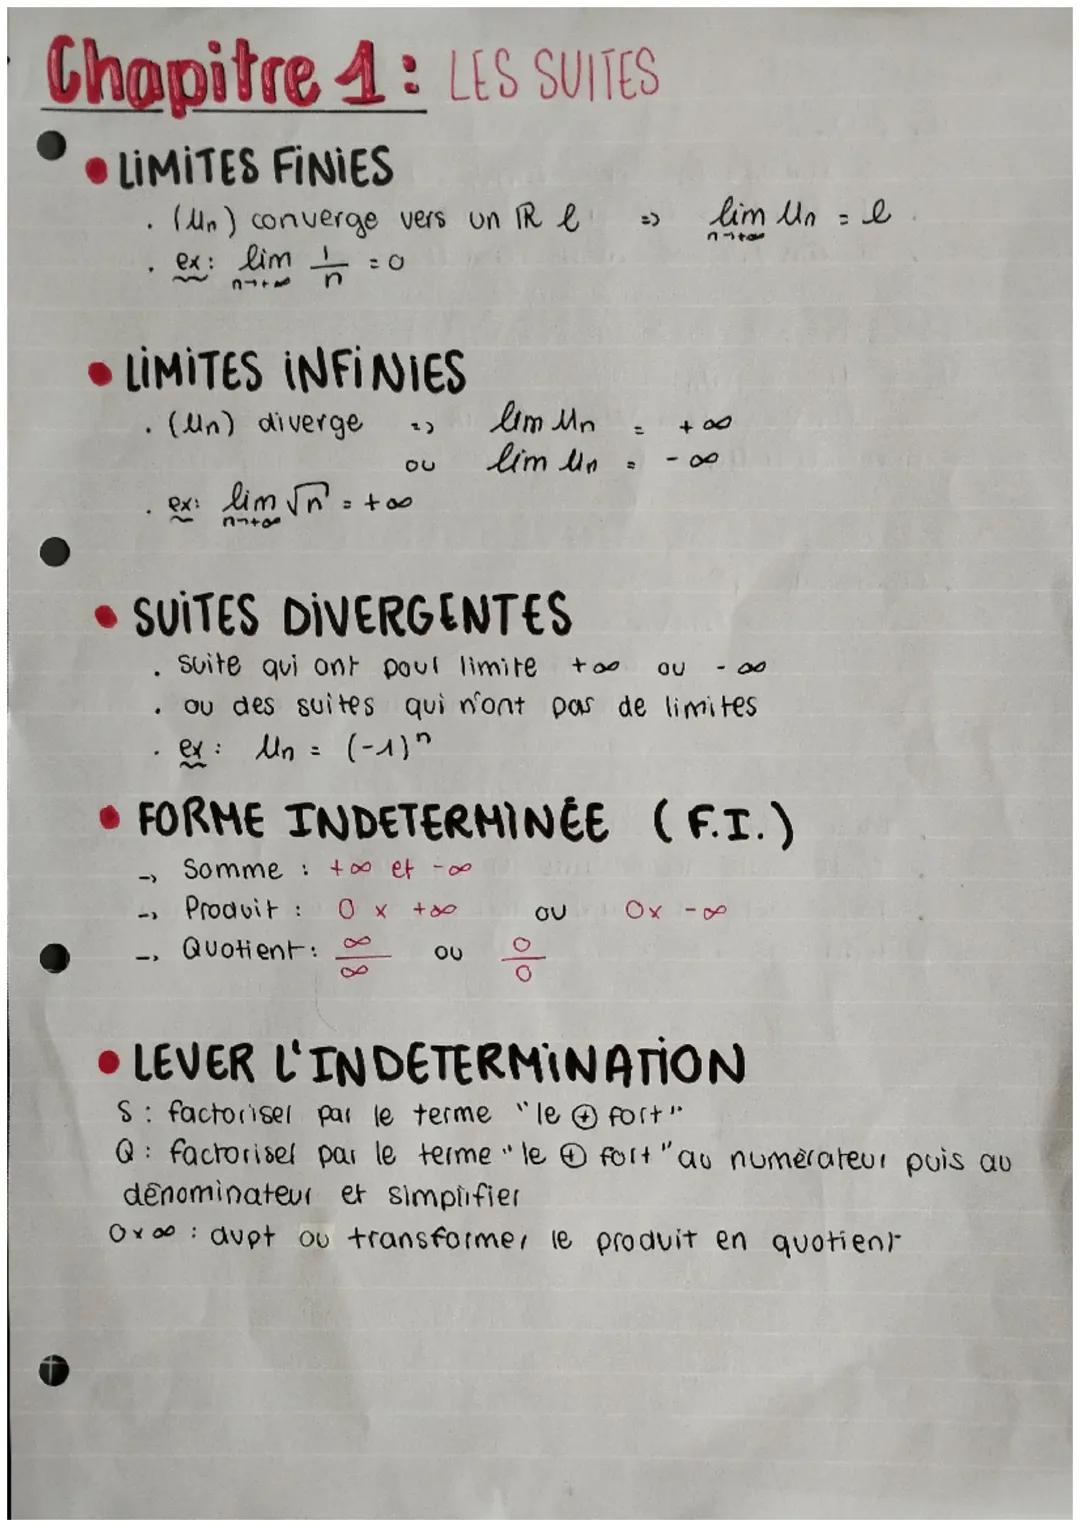 Chapitre 1 : LES SUITES
• LIMITES FINIES
. (Un) converge vers un ℝ ℓ => lim Un = ℓ
n→+∞
. ex : lim 1/n = 0
n→+∞
• LIMITES INFINIES
. (Un) diverge => lim Un = +∞
ou lim Un = -∞
. ex: lim √n = +∞
n→+∞
• SUITES DIVERGENTES
. suite qui ont pour limite +∞ ou -∞
. ou des suites qui n'ont pas de limites
. ex : Un = (-1)ⁿ
• FORME INDETERMINÉE (F.I.)
→ Somme : +∞ et -∞
→ Produit : 0 x +∞ ou 0x -∞
→ Quotient : ∞/∞ ou 0/0
• LEVER L'INDETERMINATION
S : factoriser par le terme "le ⊕ fort"
Q : factoriser par le terme "le ⊕ fort" au numérateur puis au
dénominateur et simplifier
0x∞ : dvpt ou transformer le produit en quotient